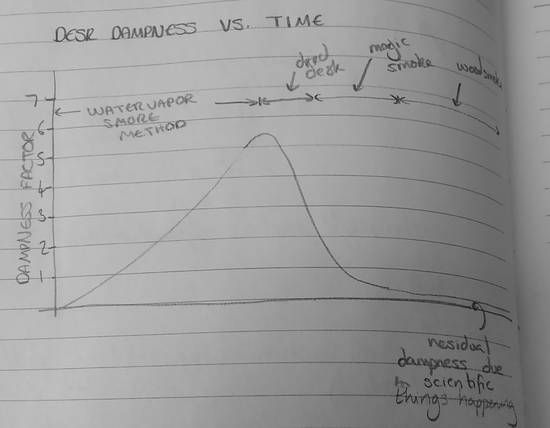 DESK DAMPNESS VS. TIME
dried
desk
magic
smoke
woodsmoke
WATERVAPOR
SMOKE
METHOD
7
6
5
4
3
2
1
DAMPNESS FACTOR
residual
dampness due
to scientific
things happening